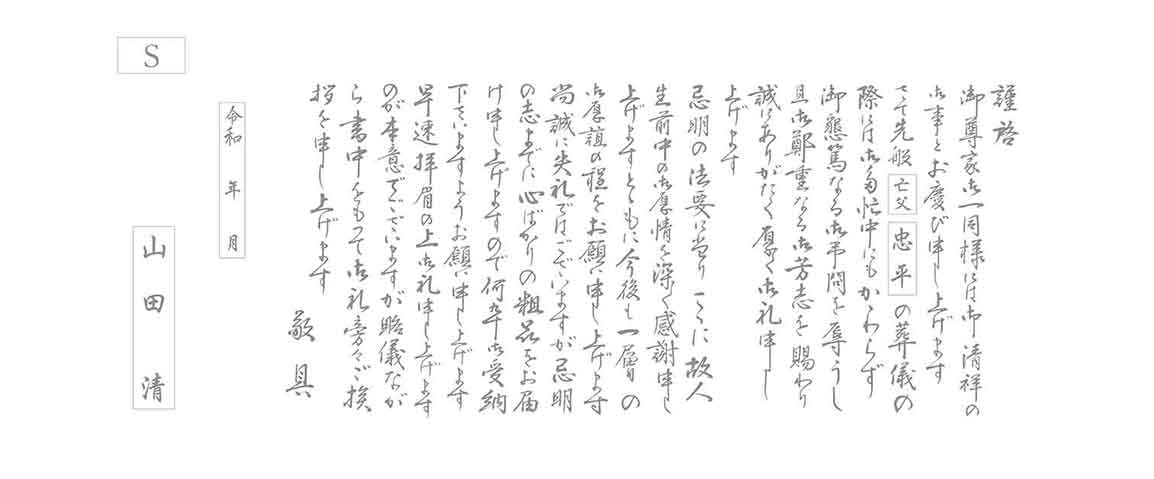 S
謹啓
御尊家御一同様には御清祥の
御事とお慶び申し上げます
さて先般亡父忠平の葬儀の
際には御多忙中にもかかわらず
御懇篤なる御弔問を辱うし
且御鄭重なる御芳志を賜わり
誠にありがたく厚く御礼申し
上げます
忌明の法要に当り ここに故人
生前中の御厚情を深く感謝申し
上げますとともに今後も一層の
御厚誼の程をお願い申し上げます
尚誠に失礼ではございますが忌明
の志までに心ばかりの粗品をお届
け申し上げますので何卒御受納
下さいますようお願い申し上げます
早速拝眉の上御礼申し上げます
のが本意でございますが略儀なが
ら書中をもって御礼旁々ご挨
拶を申し上げます
敬具
令和 年 月
山田 清